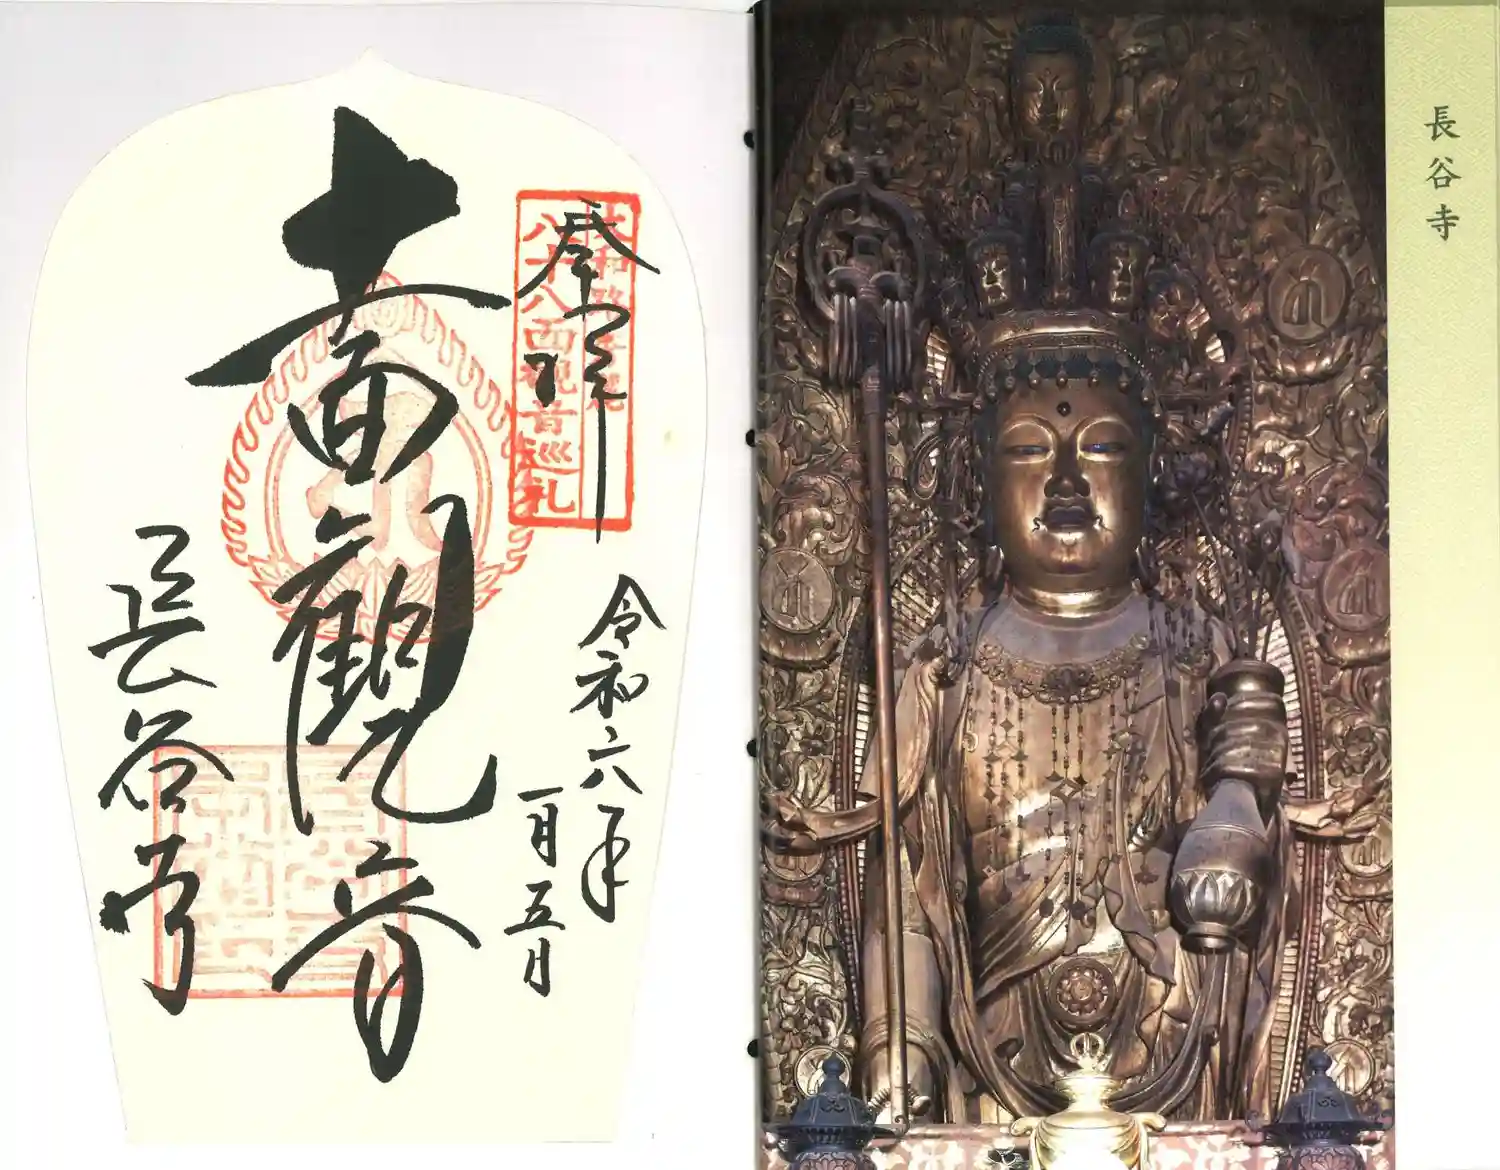 奉拝
大和路秀麗
八十八面観音巡礼
令和六年
一月五日
十一面観音
長谷寺
長谷寺